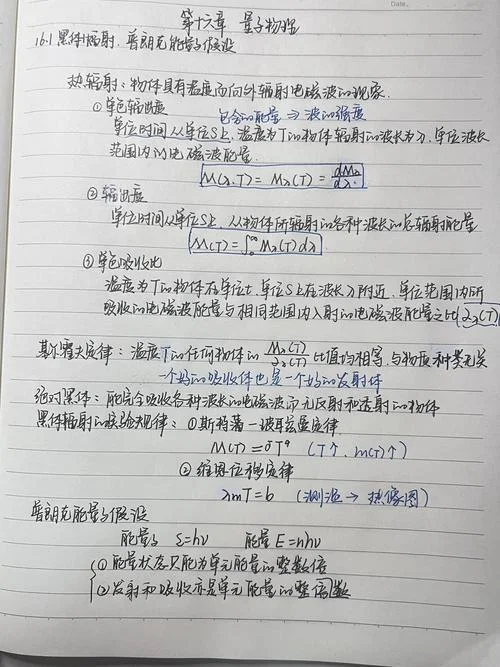 Date.
第十六章 量子物理
16.1 黑体辐射、普朗克能量子假设
热辐射：物体具有温度而向外辐射电磁波的现象.
①单色辐出度 包含的能量 ⇒ 波的强度
单位时间从单位S上，温度为T的物体辐射的波长为λ，单位波长
范围内的电磁波能量.
M(λ.T) = Mλ(T) = dMλ/dλ.
② 辐出度
单位时间从单位S上，从物体所辐射的各种波长的总辐射能量
M(T) = ∫₀^∞ Mλ(T)dλ
③ 单色吸收比
温度为T的物体在单位t、单位S上在波长λ附近，单位范围内所
吸收的电磁波能量与相同范围内入射的电磁波能量之比(αλ(T))
基尔霍夫定律：温度T的任何物体的 Mλ(T)/αλ(T) 比值均相等，与物质种类无关
一个好的吸收体也是一个好的发射体
绝对黑体：能完全吸收各种波长的电磁波而无反射和透射的物体
黑体辐射的实验规律：①斯特藩-玻耳兹曼定律
M(T) = σT⁴ (T↑, m(T)↑)
② 维恩位移定律
λmT = b (测温 → 热像图)
普朗克能量子假设
能量子 ε=hν 能量 E=nhν
①能量状态只能为单元能量的整数倍
②发射和吸收亦是单元能量的整数